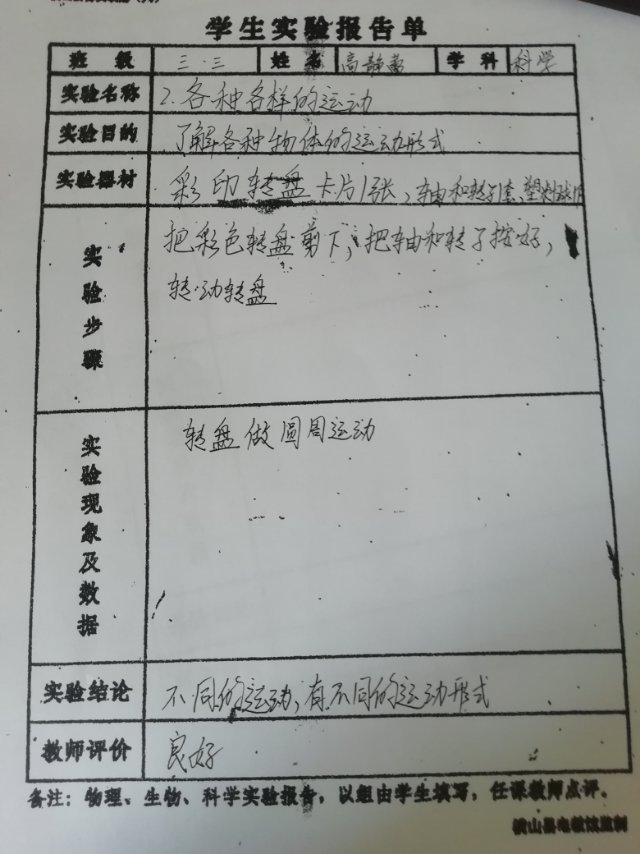 学生实验报告单
班级 三.三 姓名 高静 学科 科学
实验名称 2.各种各样的运动
实验目的 了解各种物体的运动形式
实验器材 彩印转盘卡片1张、轴和转子1套、塑料
实验步骤 把彩色转盘剪下,把轴和转子按好,
转动转盘
实验现象及数据 转盘做圆周运动
实验结论 不同的运动,有不同的运动形式
教师评价 良好
备注:物理、生物、科学实验报告,以组由学生填写,任课教师点评。
横山县电教馆监制